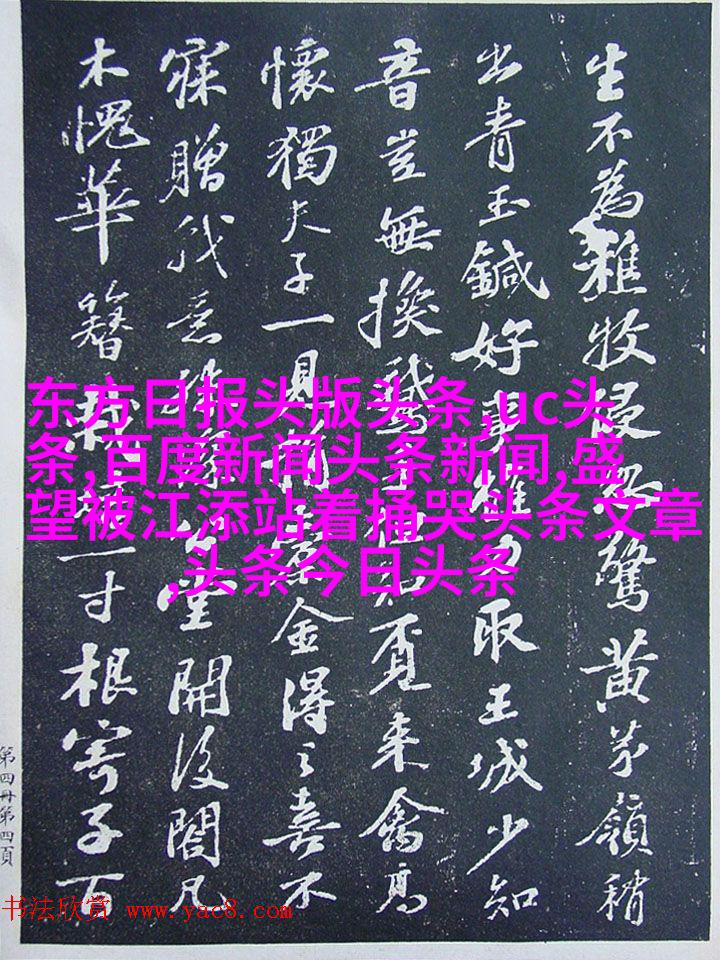 生不為雅牧侵驚黄茅嶺稍
出青玉鍼好事力取王城少知
音豈無換鵝手知覓来禽高
懷獨夫子一見金得之喜不
寐贈我意堂開後閤凡
木愧華簪一寸根寄子百
东方日报头版头条,uc头
条,百度新闻头条新闻,盛
望被江添站着捅哭头条文章
,头条今日头条
第四冊第四頁
书法欣赏 www.yac8.com